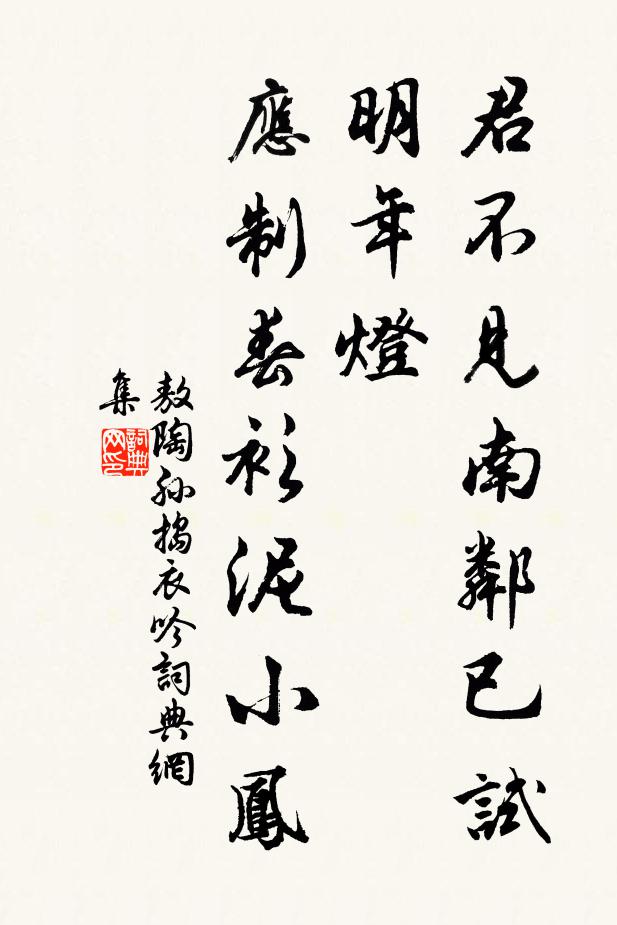 君不見南鄰已試
明年燈
應制春衫泥小鳳
敖陶孫搗衣吟詞典網
集
詞典
网印